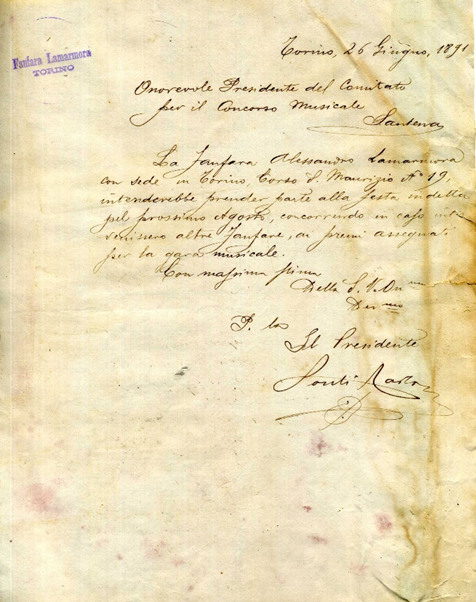 Fanfara Lamarmora
TORINO
Torino, 26 Giugno, 1891
Onorevole Presidente del Comitato
per il Concorso Musicale
Santena
La Fanfara Alessandro Lamarmora
con sede in Torino, Corso S. Maurizio No 19,
intenderebbe prender parte alla festa indetta
pel prossimo Agosto, concorrendo in caso inter
venissero altre Fanfare, ai premi assegnati
per la gara musicale.
Con massima stima
Della S. V. On
Dev mo
Il Presidente